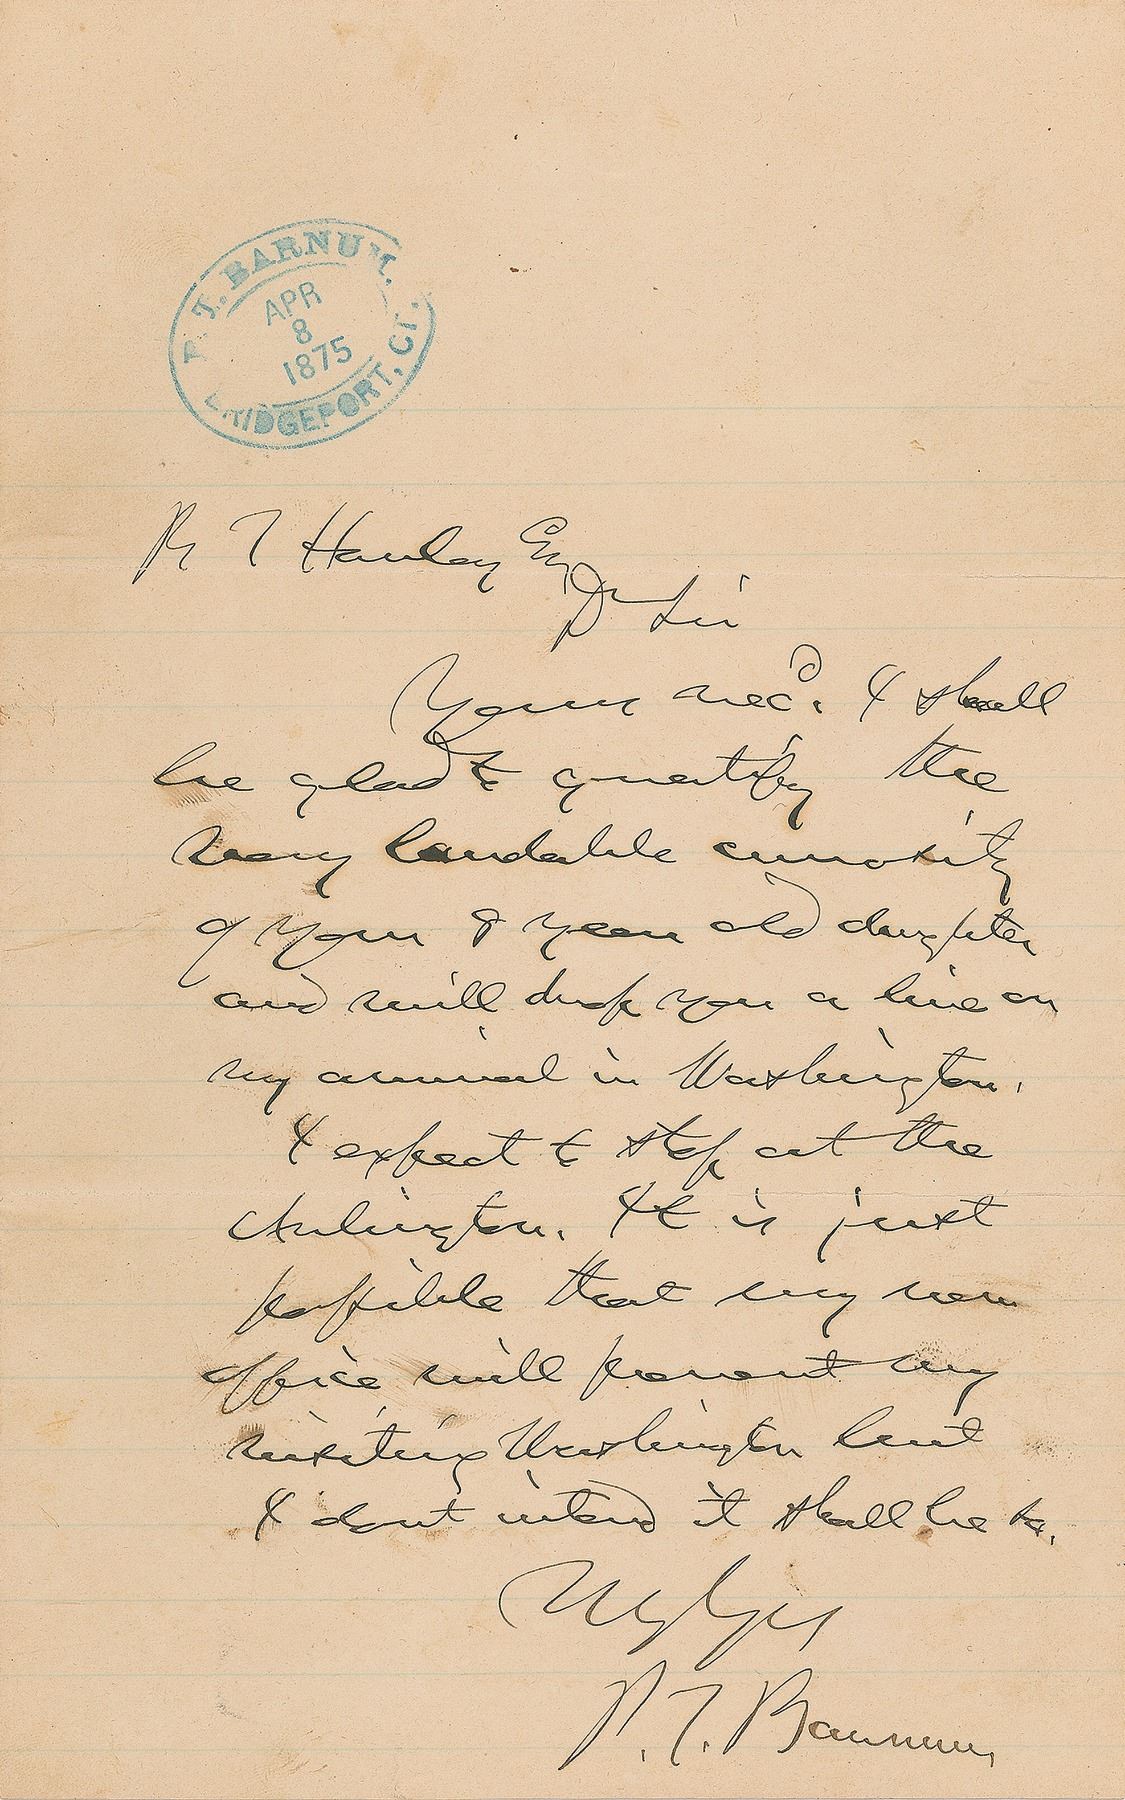 P. T. BARNUM.
APR
8
1875
BRIDGEPORT, CT.
R T Hanley Esq
Dr Sir
Yours recd. I shall
be glad to gratify the
very laudable curiosity
of your 8 year old daughter
and will drop you a line on
my arrival in Washington.
I expect to stop at the
Arlington. It is just
possible that my new
office will prevent my
visiting Washington but
I dont intend it shall be so.
P. T. Barnum